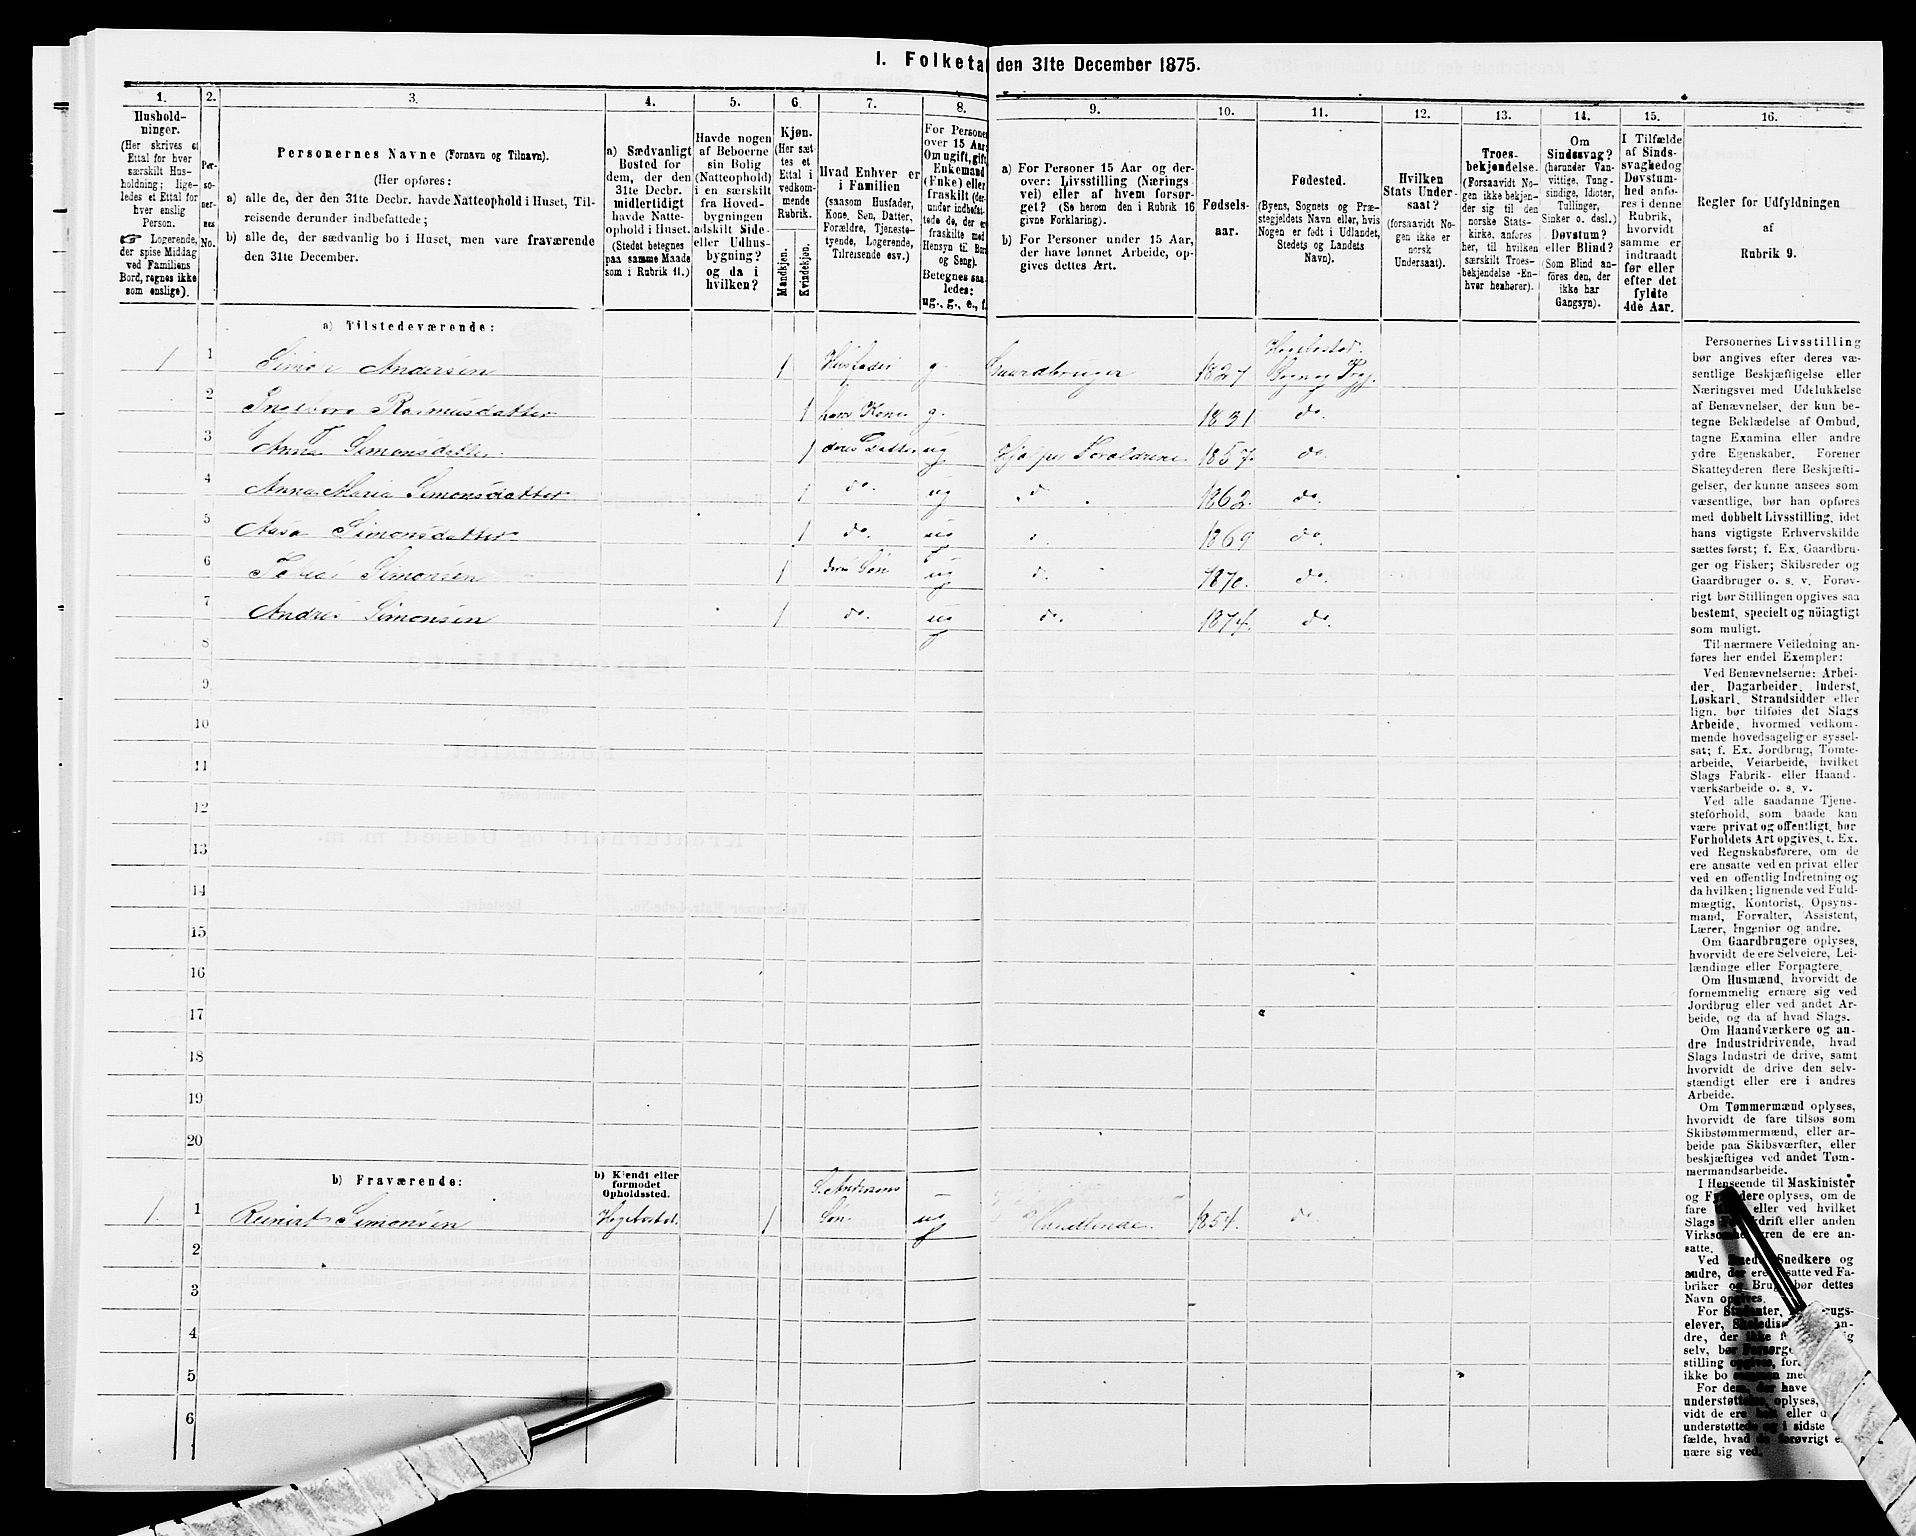 I. Folketal den 31te December 1875.
1. 2. 3. 4. 5. 6. 7. 8. 9. 10. 11. 12. 13. 14. 15. 16.
Hushold-
ninger.
(Her skrives et
Ettal for hver
særskilt Hus-
holdning; lige-
ledes et Ettal for
hver enslig
Person.
☞ Logerende,
der spise Middag
ved Familiens
Bord, regnes ikke
som enslige).
Per-
so-
ner-
nes
No.
Personernes Navne (Fornavn og Tilnavn).
(Her opføres:
a) alle de, der den 31te Decbr. havde Natteophold i Huset, Til-
reisende derunder indbefattede;
b) alle de, der sædvanlig bo i Huset, men vare fraværende
den 31te December.
a) Sædvanligt
Bosted for
dem, der den
31te Decbr.
midlertidigt
havde Natte-
ophold i Huset.
(Stedet betegnes
paa samme Maade
som i Rubrik 11.)
Havde nogen
af Beboerne
sin Bolig
(Natteophold)
i en særskilt
fra Hoved-
bygningen
adskilt Side-
eller Udhus-
bygning?
og da i
hvilken?
Kjøn.
(Her sæt-
tes et
Ettal i
vedkom-
mende
Rubrik.
Mandkjøn.
Kvindekjøn.
Hvad Enhver er
i Familien
(saasom Husfader,
Kone, Søn, Datter,
Forældre, Tjeneste-
tyende, Logerende,
Tilreisende osv.)
For Personer
over 15 Aar:
Om ugift, gift,
Enkemand
(Enke) eller
fraskilt (der-
under indbefat-
tede de, der er
fraskilte med
Hensyn til Bord
og Seng).
Betegnes saa-
ledes:
ug., g., e., f.
a) For Personer 15 Aar og der-
over: Livsstilling (Nærings-
vei) eller af hvem forsør-
get? (Se herom den i Rubrik 16
givne Forklaring).
b) For Personer under 15 Aar,
der have lønnet Arbeide, op-
gives dettes Art.
Fødsels-
aar.
Fødested.
(Byens, Sognets og Præ-
stegjeldets Navn eller, hvis
Nogen er født i Udlandet,
Stedets og Landets
Navn).
Hvilken
Stats Under-
saat?
(forsaavidt No-
gen ikke er
norsk
Undersaat).
Troes-
bekjendelse.
(Forsaavidt No-
gen ikke bekjen-
der sig til den
norske Stats-
kirke, anføres
her, til hvilken
særskilt Troes-
bekjendelse En-
hver henhører).
Om
Sindssvag?
(herunder Van-
vittige, Tung-
sindige, Idioter,
Tullinger,
Sinker o. desl.)
Døvstum?
eller Blind?
(Som Blind an-
føres den, der
ikke har
Gangsyn).
I Tilfælde
af Sinds-
svaghed og
Døvstum-
hed anfø-
res i denne
Rubrik,
hvorvidt
samme er
indtraadt
før eller
efter det
fyldte
4de Aar.
Regler for Udfyldningen
af
Rubrik 9.
a) Tilstedeværende:
1 1 Simon Andersen 1 Husfader g. Gaardbruger 1827 Hegebostad Sogn og Prgj.
2 Ingeborg Rasmusdatter 1 hans Kone g. 1831 do
3 Anna Simonsdatter 1 deres Datter ug Hjelper Foraldrene 1857. do
4 Anna Maria Simonsdatter 1 do. ug d. 1862. do
5 Aasa Simonsdatter 1 do. ug d. 1869 do.
6 Tobias Simonsen 1 deres Søn ug d. 1870. do.
7 Andreas Simonsen 1 do. ug do. 1874. do.
8
9
10
11
12
13
14
15
16
17
18
19
20
b) Fraværende:
b) Kjendt eller
formodet
Opholdssted.
1 1 Reinert Simonsen Hegebostad 1 S. Andersens Søn ug Handlende. 1854. do
2
3
4
5
6
Personernes Livsstilling
bør angives efter deres væ-
sentlige Beskjæftigelse eller
Næringsvei med Udelukkelse
af Benævnelser, der kun be-
tegne Beklædelse af Ombud,
tagne Examina eller andre
ydre Egenskaber. Forener
Skatteyderen flere Beskjæfti-
gelser, der kunne ansees som
væsentlige, bør han opføres
med dobbelt Livsstilling, idet
hans vigtigste Erhvervskilde
sættes først; f. Ex. Gaardbru-
ger og Fisker; Skibsreder og
Gaardbruger o. s. v. Forøv-
rigt bør Stillingen opgives saa
bestemt, specielt og nöiagtigt
som muligt.
Til nærmere Veiledning an-
føres her endel Exempler:
Ved Benævnelserne: Arbei-
der, Dagarbeider, Inderst,
Løskarl, Strandsidder eller
lign. bør tilføies det Slags
Arbeide, hvormed vedkom-
mende hovedsagelig er syssel-
sat; f. Ex. Jordbrug, Tomte-
arbeide, Veiarbeide, hvilket
Slags Fabrik- eller Haand-
værksarbeide o. s. v.
Ved alle saadanne Tjene-
steforhold, som baade kan
være privat og offentligt, bør
Forholdets Art opgives, t. Ex.
ved Regnskabsførere, om de
ere ansatte ved en privat eller
ved en offentlig Indretning og
da hvilken; lignende ved Fuld-
mægtig, Kontorist, Opsyns-
mand, Forvalter, Assistent,
Lærer, Ingeniør og andre.
Om Gaardbrugere oplyses,
hvorvidt de ere Selveiere, Lei-
lændinge eller Forpagtere.
Om Husmænd, hvorvidt de
fornemmelig ernære sig ved
Jordbrug eller ved andet Ar-
beide, og da af hvad Slags.
Om Haandværkere og an-
dre Industridrivende, hvad
Slags Industri de drive, samt
hvorvidt de drive den selv-
stændigt eller ere i andres
Arbeide.
Om Tømmermænd oplyses,
hvorvidt de fare tilsøs som
Skibstømmermænd, eller ar-
beide paa Skibsværfter, eller
beskjæftiges ved andet Tøm-
mermandsarbeide.
I Henseende til Maskinister
og Fyrbødere oplyses, om de
fare eller ved hvilket
Slags drift eller anden
Virksomhed de ere an-
satte.
Ved Smede, Snedkere og
andre, der ere ansatte ved Fa-
briker og Brug, bør dettes
Navn opgives.
For Studenter, brugs-
elever, an-
dre, der ikke sig
selv, bør Forsørge
stilling opgives, for
ikke bo sammen med
For dem, der have
understøttelse, oplyses,
vidt de ere eller
understøttede og i sidste
fælde, hvad de forøvrigt er-
nære sig ved.